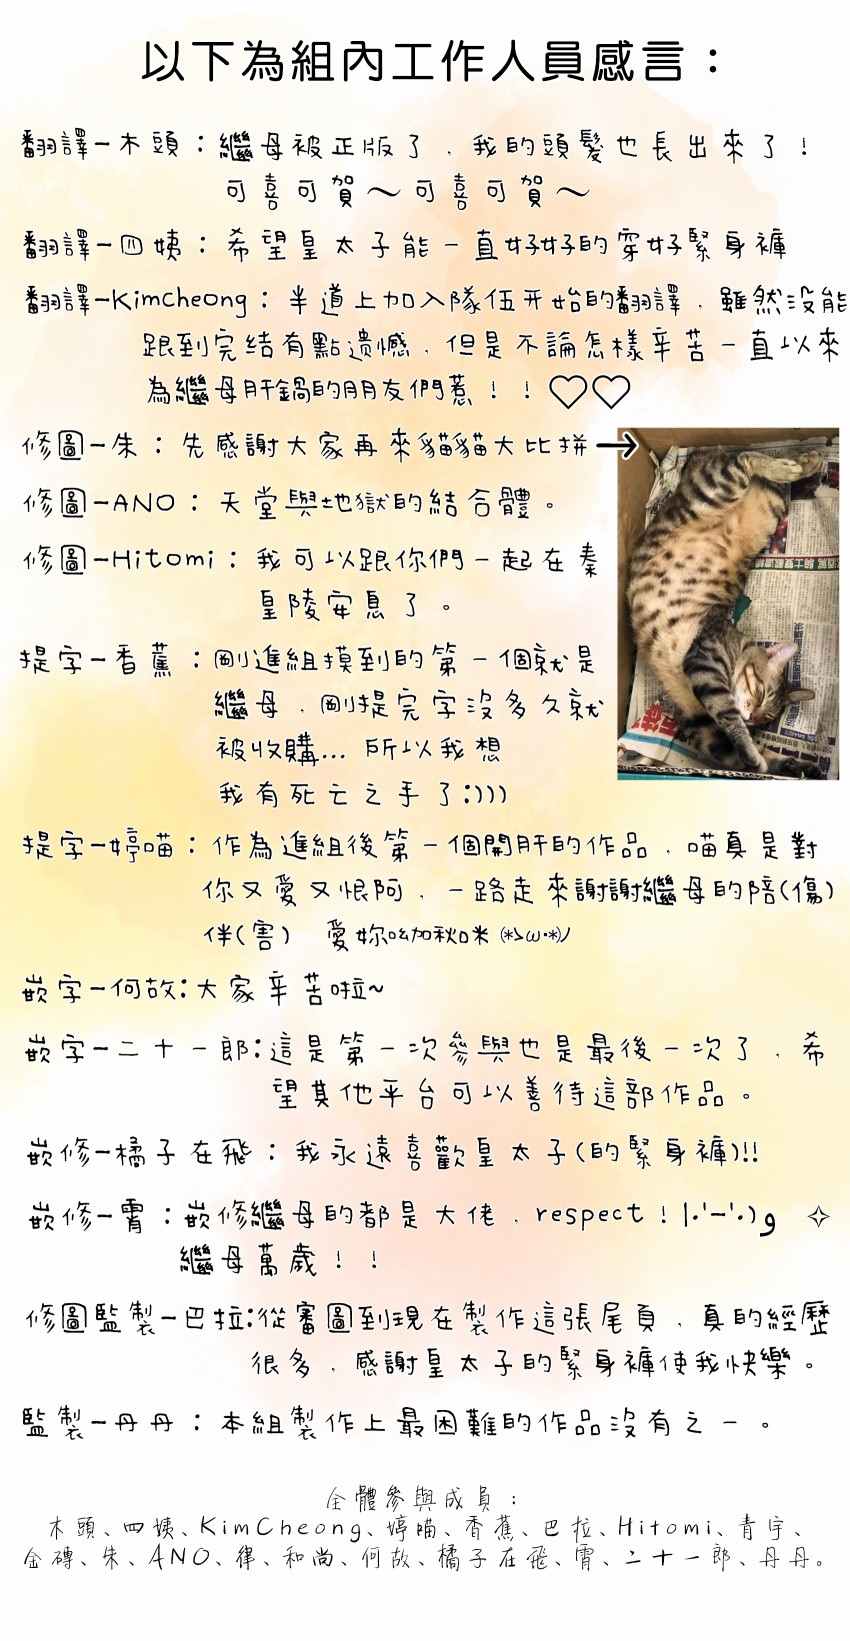 以下為組內工作人員感言：
翻譯－木頭：繼母被正版了，我的頭髮也長出來了！
可喜可賀～可喜可賀～
翻譯－四姨：希望皇太子能一直好好的穿好緊身褲
翻譯－Kimcheong：半道上加入隊伍开始的翻譯，雖然没能
跟到完结有點遗憾，但是不論怎樣辛苦一直以來
為繼母肝鍋的朋友們惹！！♡♡
修圖－朱：先感謝大家再來貓貓大比拼→
修圖－ANO：天堂與地獄的結合體。
修圖－Hitomi：我可以跟你們一起在秦
皇陵安息了。
提字－香蕉：剛進組摸到的第一個就是
繼母，剛提完字沒多久就
被收購... 所以我想
我有死亡之手了:)))
提字－婷喵：作為進組後第一個開肝的作品，喵真是對
你又愛又恨阿，一路走來謝謝繼母的陪(傷)
伴(害) 愛妳呦加秋咪 (*>ω•*)ﾉ
嵌字－何故:大家辛苦啦~
嵌字－二十一郎:這是第一次參與也是最後一次了，希
望其他平台可以善待這部作品。
嵌修－橘子在飛：我永遠喜歡皇太子(的緊身褲)!!
嵌修－霄：嵌修繼母的都是大佬，respect！|•'-'•)و ✧
繼母萬歲！！
修圖監製－巴拉:從審圖到現在製作這張尾頁，真的經歷
很多，感謝皇太子的緊身褲使我快樂。
監製－丹丹：本組製作上最困難的作品沒有之一。
全體參與成員：
木頭、四姨、KimCheong、婷喵、香蕉、巴拉、Hitomi、青宇、
金磚、朱、ANO、律、和尚、何故、橘子在飛、霄、二十一郎、丹丹。